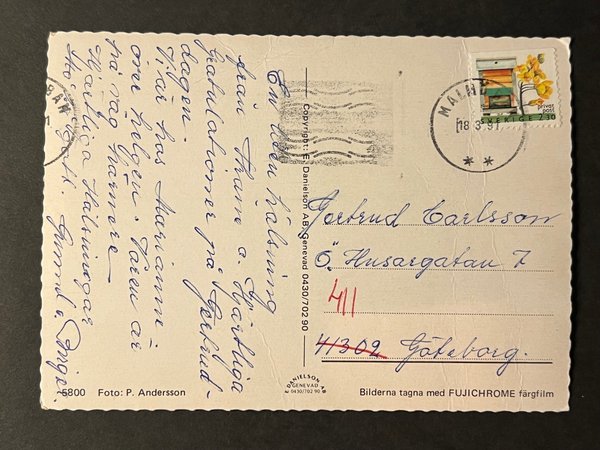 En liten hälsning
från Tranm o. Hjärtliga
Gratulationer på Gertrud-
dagen.
Vi är hos Marianne
över helgen. Våren är
på väg närmare
Hjärtliga Hälsningar
Gunni o. Birger
Copyright: E. Danielson AB, Genevad 0430/702 90
MALMÖ
18 3.91
privat
post
SVERIGE 2.30
Gertrud Carlsson
Ö. Husargatan 7
411
41302 Göteborg.
5800 Foto: P. Andersson
DANIELSON AB
GENEVAD
0430/702 90
Bilderna tagna med FUJICHROME färgfilm